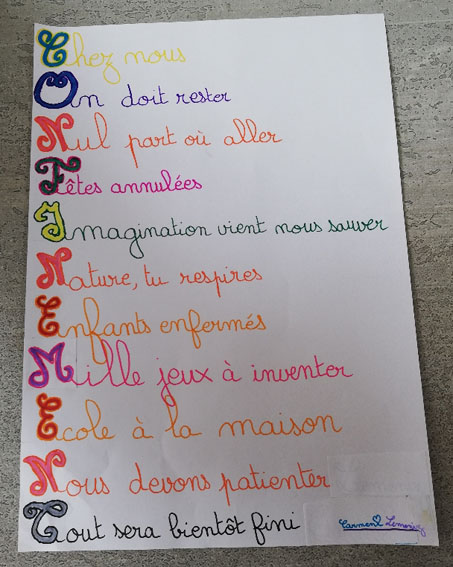 Chez nous
On doit rester
Nul part où aller
Fêtes annulées
Imagination vient nous sauver
Nature, tu respires
Enfants enfermés
Mille jeux à inventer
Ecole à la maison
Nous devons patienter
Tout sera bientôt fini
Carmen